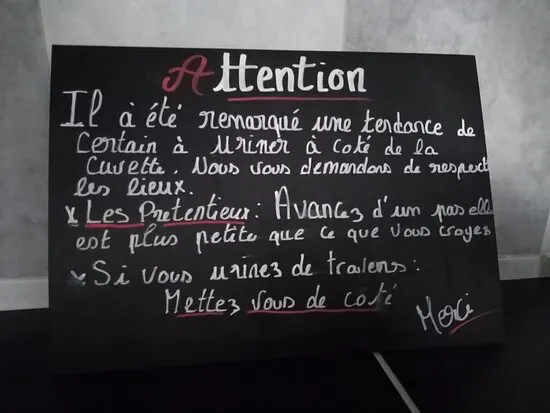 Attention
Il à été remarqué une tendance de
Certain à Uriner à coté de la
Cuvette. Nous vous demandons de respect
les lieux.
x Les Pretentieux: Avancez d'un pas elle
est plus petite que ce que vous croyez
x Si vous urinez de travers:
Mettez vous de côté
Merci